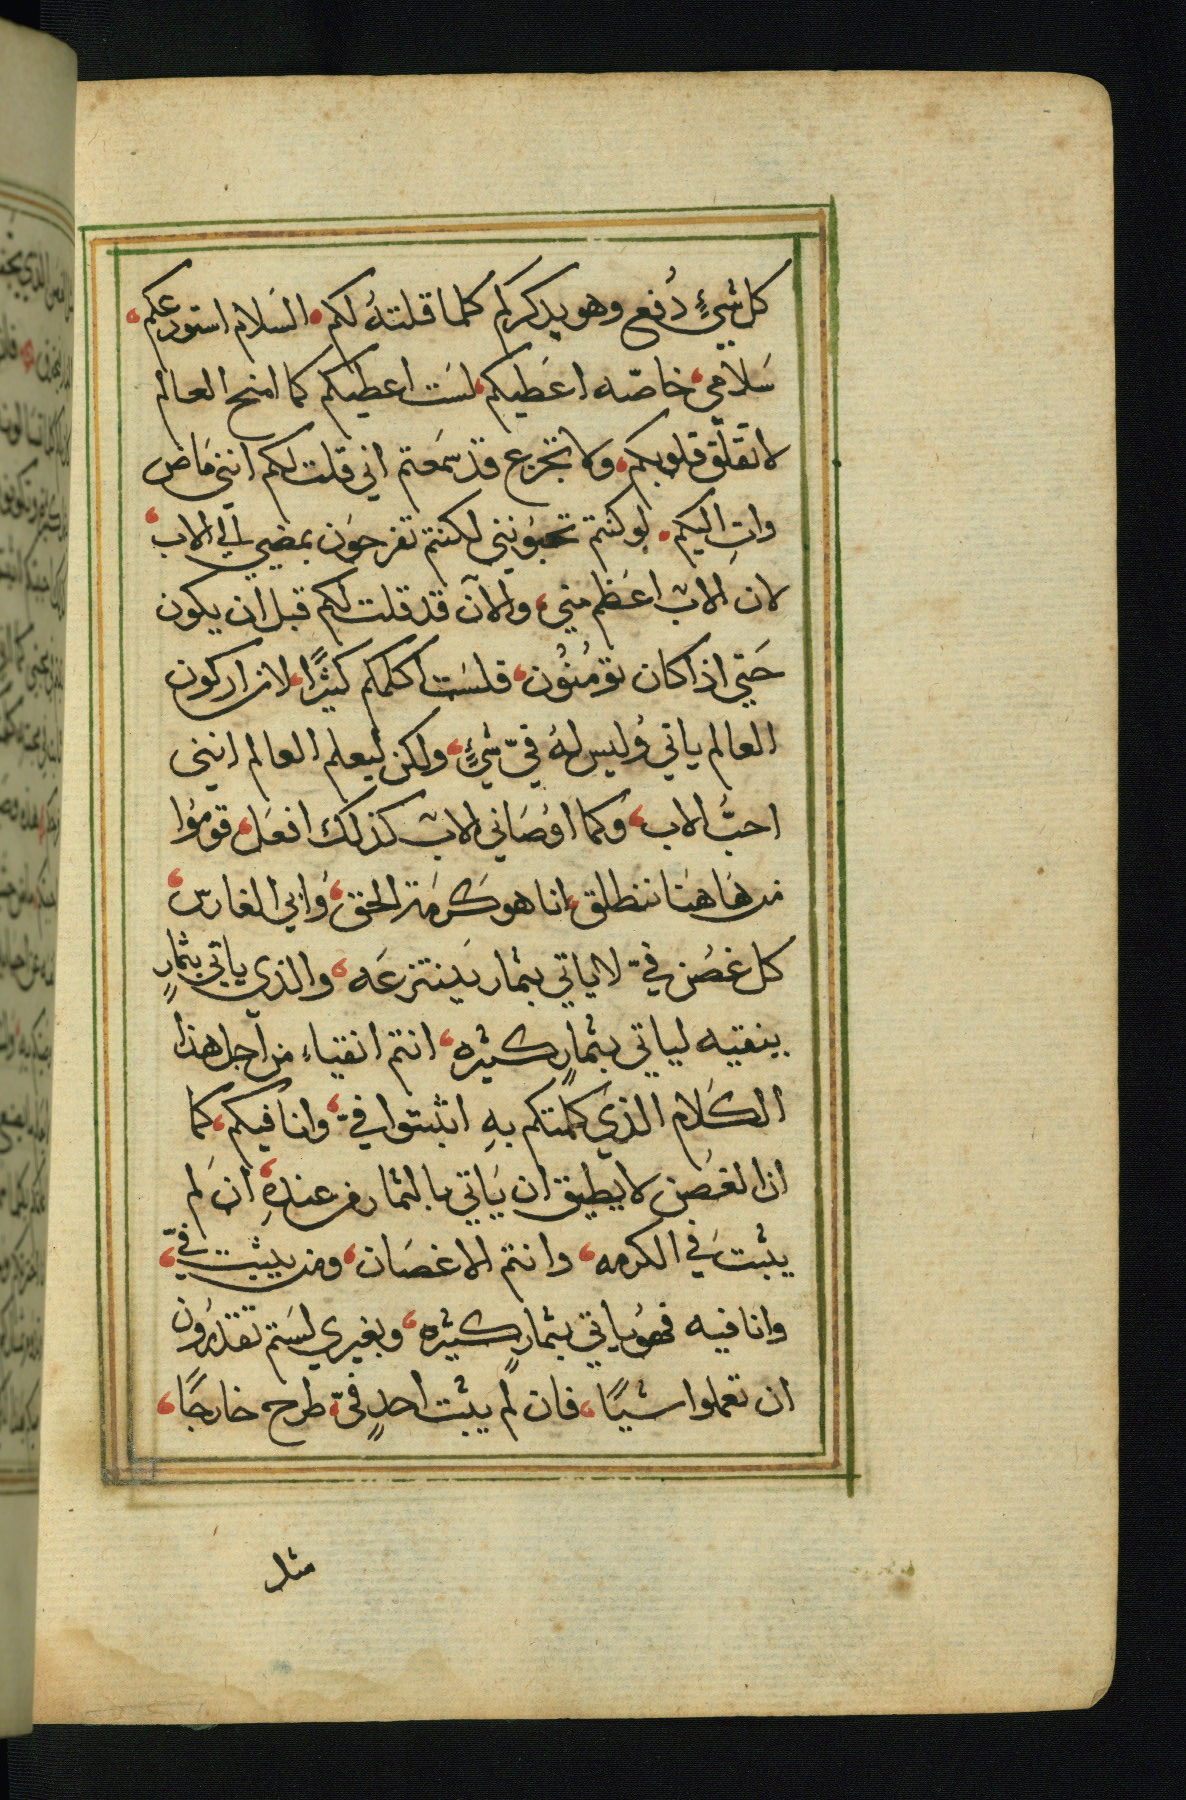 كل شيءٍ دُفع وهو يدكركم كلما قلتهُ لكم، السَلام استودعكم،
سَلامي، خاصّه اعَطيكم، لسَت اعطيكم كما امنح العالم
لا تقلَّق قلوبكم، ولا تجزع قد سمَعتم اني قلت لكم انني مَاض
واتِ اليكم، لوكنتم تحبوَنني لكنتم تفرحوَن بمضيي الي الاب،
لان الاب اعَظم مني، والآن قد قلت لكم قبل ان يكون
حَتي اذا كان تومُنوُن، فلسَت اكلمكم كثيرًا، لان اركون
العالم ياتي وُليس لهُ فيّ شيءٍ، ولكن ليعلم العالم انني
احبُّ الاب، وَكما اوُصَاني الاب كذلك افعَل، قومُوا
من هَاهنَا ننطلق، انا هو كَرمَة الحق، وَابي الغارس،
كل غصُن فيّ لا ياتي بثمار يَنتزعَه، والذي ياتي بثمارٍ
ينقيه لياتي بثمارٍ كثيره، انتم انقياء من اجل هذا
الكَلام الذي كلمتكم بهِ اثبتوا فيّ، وانا فيكم، كما
ان الغصَن لا يطيق ان يَاتي بالثمار من عندهِ، ان لَم
يثبت في الكرمه، وانتم الاغصَان، ومن يثبت فيّ،
وانا فيه فهوُ ياتي بثمارٍ كثيره، وبغيري لسَتم تقتدرُون
ان تعملوا شيًا، فان لم يثبت احدٍ فيّ، طرح خارجًا،
مثل